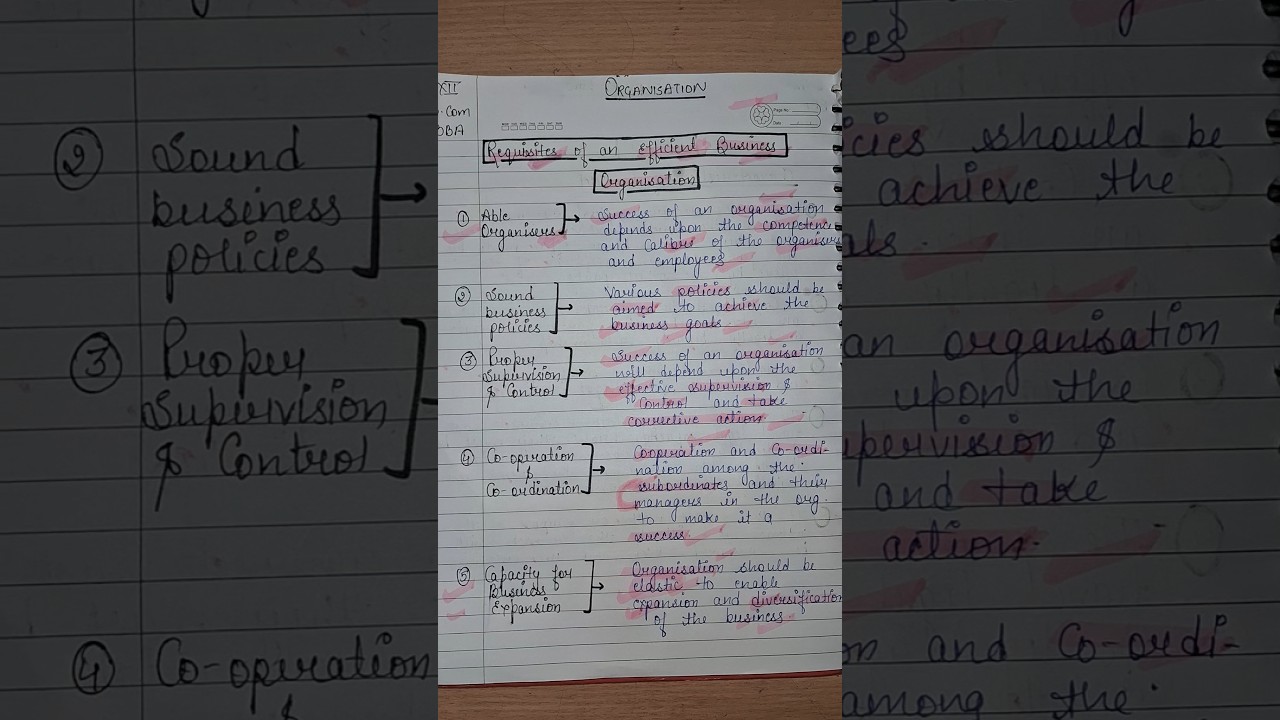 ORGANISATION
XII
.Com
OBA
Page No.
Date
Requisites of an efficient Business
Organisation
① Able Organisers → Success of an organisation
depends upon the competence
and calibre of the organisers
and employees
② Sound business policies → Various policies should be
aimed to achieve the
business goals.
③ Proper Supervision & Control → Success of an organisation
will depend upon the
effective supervision &
control and take
corrective action.
④ Co-operation & Co-ordination → Cooperation and Co-ordi-
nation among the
subordinates and their
managers in the org.
to make it a
success.
⑤ Capacity for Business Expansion → Organisation should be
elastic to enable
expansion and diversification
of the business.
② Sound
business
policies
③ Proper
Supervision
& Control
④ Co-operation
&
ees
cies should be
achieve the
als.
an organisation
upon the
pervision &
and take
action.
and Co-ordi-
among the